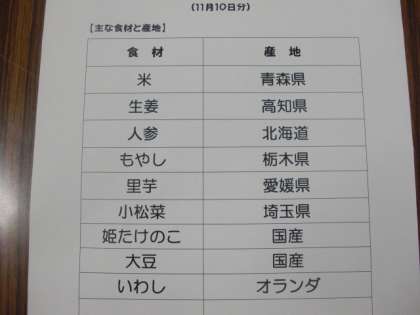 (11月10日分)
【主な食材と産地】
食 材 産 地
米 青森県
生姜 高知県
人参 北海道
もやし 栃木県
里芋 愛媛県
小松菜 埼玉県
姫たけのこ 国産
大豆 国産
いわし オランダ